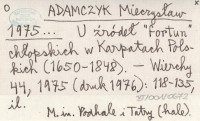 ADAMCZYK Mieczysław
1975... U źródeł "fortun"
chłopskich w Karpatach Pols-
kich (1650-1848). — Wierchy
44, 1975 (druk 1976): 118-135,
il.
M. in. Podhale i Tatry (hale).